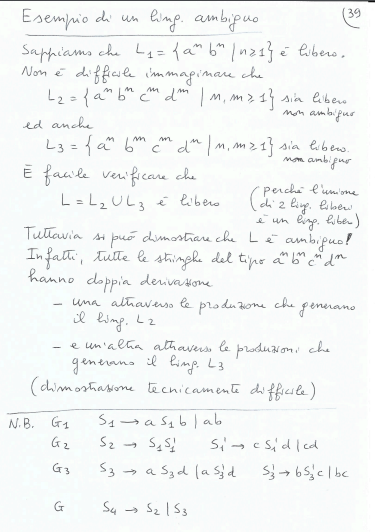 Esempio di un ling. ambiguo
39
Sappiamo che L₁ = { aⁿ bⁿ | n ≥ 1 } è libero.
Non è difficile immaginare che
L₂ = { aⁿ bⁿ cᵐ dᵐ | n, m ≥ 1 } sia libero
non ambiguo
ed anche
L₃ = { aⁿ bᵐ cᵐ dⁿ | n, m ≥ 1 } sia libero.
non ambiguo
È facile verificare che
L = L₂ ∪ L₃ è libero
(perché l'unione
di 2 ling. liberi
è un ling. libero)
Tuttavia si può dimostrare che L è ambiguo!
Infatti, tutte le stringhe del tipo aⁿbⁿcⁿdⁿ
hanno doppia derivazione
- una attraverso le produzioni che generano
il ling. L2
- e un'altra attraverso le produzioni che
generano il ling. L3
(dimostrazione tecnicamente difficile)
N.B. G1 S1 → a S1 b | ab
G2 S2 → S1 S1' S1' → c S1' d | cd
G3 S3 → a S3 d | a S3' d S3' → b S3' c | bc
G S4 → S2 | S3